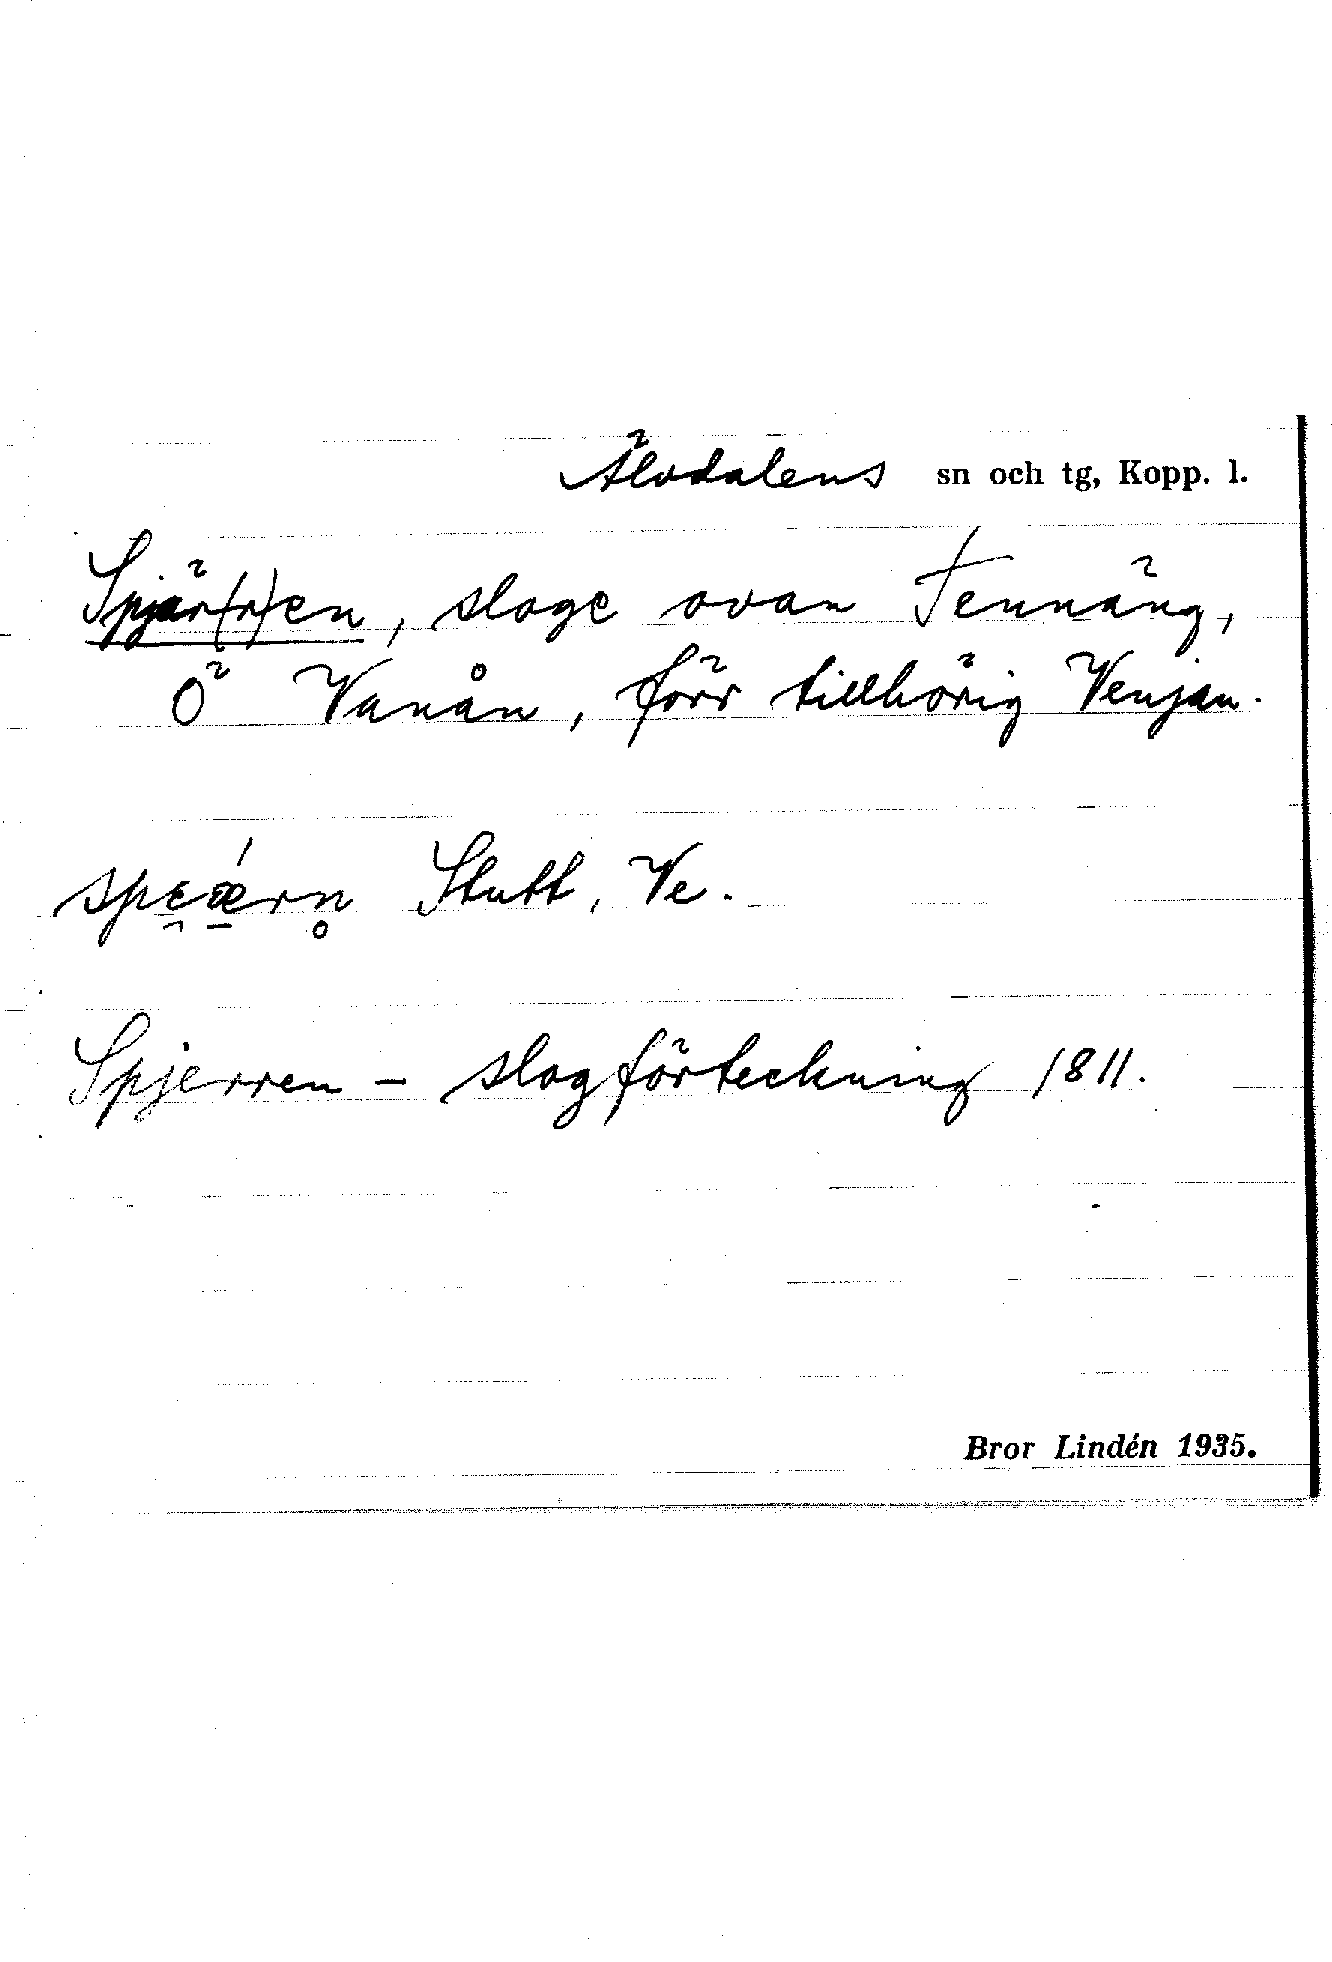 Älvdalens sn och tg, Kopp. l.
Spjär(r)en, sloge ovan Tennäng,
Ö Vanån, förr tillhörig Venjan.
spe̯ǽrn̥ Stutt, Ve.
Spjerren – slogförteckning 1811.
Bror Lindén 1935.